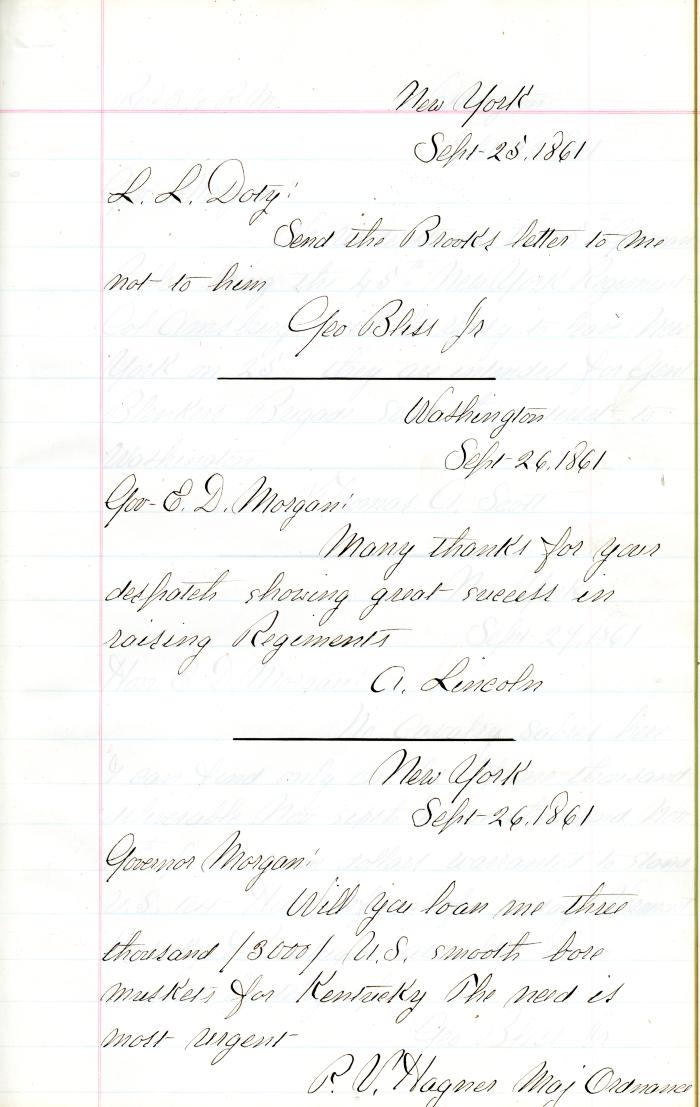 New York
Sept 25, 1861
L. L. Doty:
Send the Brooks letter to me
not to him
Geo Bliss Jr
Washington
Sept 26, 1861
Gov E. D. Morgan:
Many thanks for your
despatch showing great success in
raising Regiments
A. Lincoln
New York
Sept 26, 1861
Governor Morgan:
Will you loan me three
thousand /3000/ U.S. smooth bore
muskets for Kentucky The need is
most urgent
P. V. Hagner Maj Ordnance